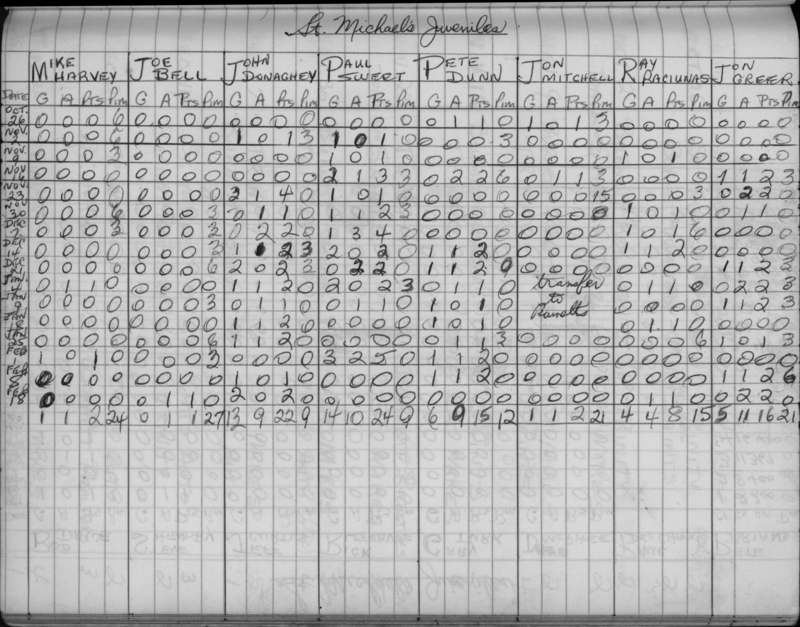 St. Michael's Juveniles
MIKE HARVEY JOE BELL JOHN DONAGHEY PAUL SWEET PETE DUNN JON MITCHELL RAY RACIUNAS JON GREER
DATE G A Pts Pim G A Pts Pim G A Pts Pim G A Pts Pim G A Pts Pim G A Pts Pim G A Pts Pim G A Pts Pim
OCT. 26 0 0 0 6 0 0 0 0 0 0 0 0 0 0 0 0 0 1 1 0 1 0 1 3 0 0 0 0 0 0 0 0
NOV. 2 0 0 0 6 0 0 0 0 1 0 1 3 1 0 1 0 0 0 0 3 0 0 0 0 0 0 0 0 0 0 0 0
NOV. 9 0 0 0 3 0 0 0 0 0 0 0 0 1 0 1 0 0 0 0 0 0 0 0 0 1 0 1 0 0 0 0 0
NOV 16 0 0 0 0 0 0 0 0 0 0 0 0 2 1 3 3 0 2 2 6 0 1 1 3 0 0 0 0 1 1 2 3
NOV 23 0 0 0 0 0 0 0 0 3 1 4 0 1 0 1 0 0 0 0 0 0 0 0 15 0 0 0 3 0 2 2 0
NOV 30 0 0 0 6 0 0 0 3 0 1 1 0 1 1 2 3 0 0 0 0 0 0 0 0 1 0 1 0 0 1 1 0
DEC 7 0 0 0 3 0 0 0 3 0 2 2 0 1 3 4 0 0 0 0 0 0 0 0 0 1 0 1 6 0 0 0 0
DEC 14 0 0 0 0 0 0 0 3 1 1 2 3 2 0 2 0 1 1 2 0 0 0 0 0 1 1 2 0 0 0 0 0
DEC 21 0 0 0 0 0 0 0 6 2 0 2 3 0 2 2 0 1 1 2 0 0 0 0 0 0 0 0 0 1 1 2 3
JAN 4 0 1 1 0 0 0 0 0 1 1 2 0 2 0 2 3 0 1 1 0 transfer 0 1 1 0 0 2 2 3
JAN 0 0 0 0 0 0 0 3 0 1 1 0 0 1 1 0 1 0 1 0 to 0 0 0 0 1 1 2 3
JAN 18 0 0 0 0 0 0 0 0 1 1 2 0 0 0 0 0 1 0 1 0 0 1 1 0 0 0 0 0
25 0 0 0 0 0 0 0 6 1 1 2 0 0 1 1 3 0 0 0 0 0 0 0 6 1 0 1 3
FEB 1 1 0 1 0 0 0 0 3 3 2 5 0 1 1 2 0 0 0 0 0 0 0 0 0 0 0 0 0
FEB 8 0 0 0 0 0 0 0 0 1 0 1 0 0 0 0 0 1 1 2 0 0 0 0 0 0 0 0 0 1 1 2 6
FEB 15 0 0 0 0 0 1 1 0 2 0 2 0 0 0 0 0 0 0 0 0 0 1 1 0 0 2 2 0
1 1 2 24 0 1 1 27 13 9 22 9 14 10 24 9 6 9 15 12 1 1 2 21 4 4 8 15 5 11 16 21